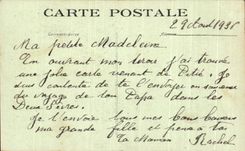 CARTE POSTALE
29 Aout 1938
Ma petite Madeleine
En ouvrant mon j'ai trouvé
une jolie carte venant de je
suis contente de te l'envoyer en souvenir
du voyage de ton Papa dans les
Deux Sèvres.
Je t'envoie tous mes bons baisers
ma grande fille et pense à toi
ta Maman Rachel